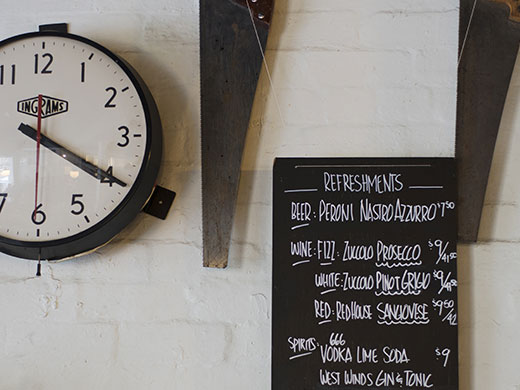 11 12 1 2 3 4 5 6 7
INGRAMS
REFRESHMENTS
BEER: PERONI NASTRO AZZURRO $7.50
WINE: FIZZ: ZUCCOLO PROSECCO $9/
WHITE: ZUCCOLO PINOT GRIGIO $9/
RED: REDHOUSE SANGIOVESE $9.50/42
SPIRITS: 666
VODKA LIME SODA $9
WEST WINDS GIN & TONIC